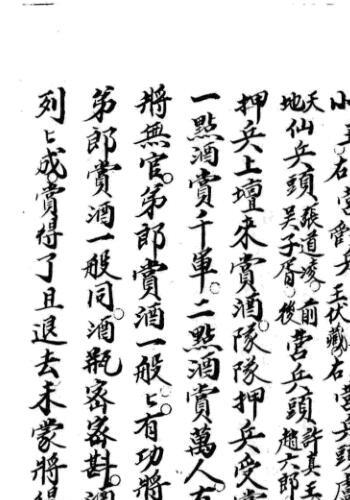 右營管兵王伏藏右營兵頭
天地仙兵頭張道凌吳子胥前後營兵頭許真王趙六郎
押兵上壇來賞酒。隊隊押兵受賞
一點酒賞千軍。二點酒賞萬人。
將無官。第郎賞酒一般〻。有功將
第郎賞酒一般同。酒瓶密密斟。酒
列〻成。賞得了且退去未蒙將得